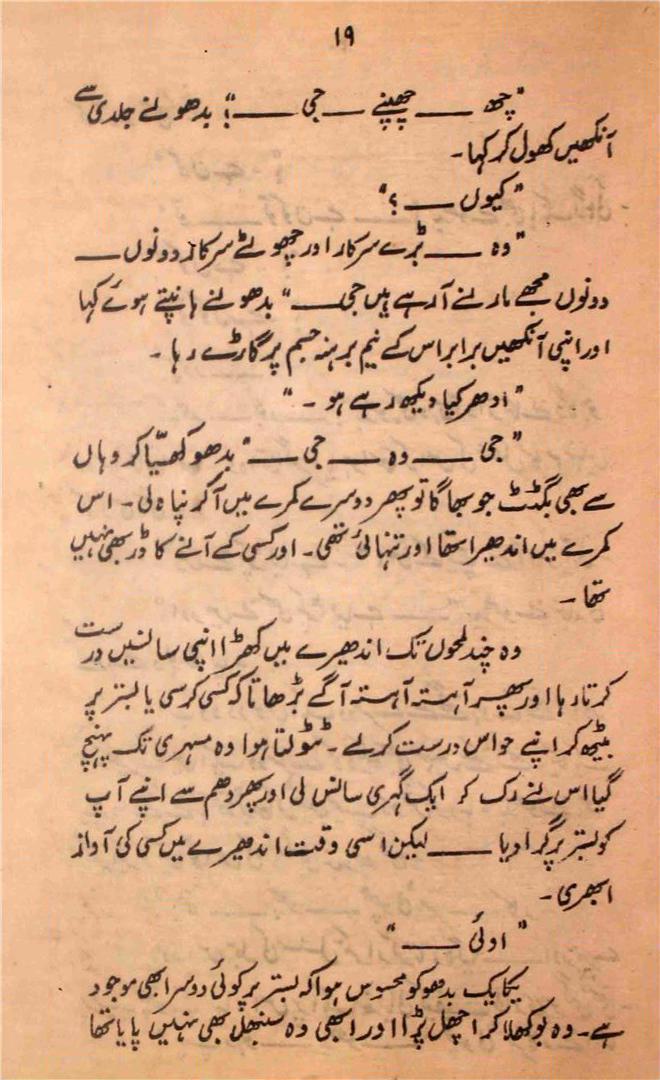 ۱۹
"چھ ـــــ چھپنے ـــــ جی ـــــ"؛ بدھو نے جلدی سے
آنکھیں کھول کر کہا۔
"کیوں ـــــ ؟"
"وہ ـــــ بڑے سرکار اور چھوٹے سرکار دونوں ـــــ
دونوں مجھے مارنے آ رہے ہیں جی ـــــ" بدھو نے ہانپتے ہوئے کہا
اور اپنی آنکھیں برابر اس کے نیم برہنہ جسم پر گاڑے رہا۔
"ادھر کیا دیکھ رہے ہو۔"
"جی ـــــ وہ ـــــ جی ـــــ" بدھو کھسیّا کر وہاں
سے بھی بگٹٹ جو بھاگا تو پھر دوسرے کمرے میں آکر پناہ لی۔ اس
کمرے میں اندھیرا تھا اور تنہائی تھی۔ اور کسی کے آنے کا ڈر بھی نہیں
تھا۔
وہ چند لمحوں تک اندھیرے میں کھڑا اپنی سانسیں درست
کرتا رہا اور پھر آہستہ آہستہ آگے بڑھا تاکہ کسی کرسی یا بستر پر
بیٹھ کر اپنے حواس درست کرلے۔ ٹٹولتا ہوا وہ مسہری تک پہنچ
گیا اس نے رک کر ایک گہری سانس لی اور پھر دھم سے اپنے آپ
کو بستر پر گرا دیا ـــــ لیکن اسی وقت اندھیرے میں کسی کی آواز
ابھری۔
"اوئی ـــــ"
یکایک بدھو کو محسوس ہوا کہ بستر پر کوئی دوسرا بھی موجود
ہے۔ وہ بوکھلا کر اچھل پڑا اور ابھی وہ سنبھل بھی نہیں پایا تھا